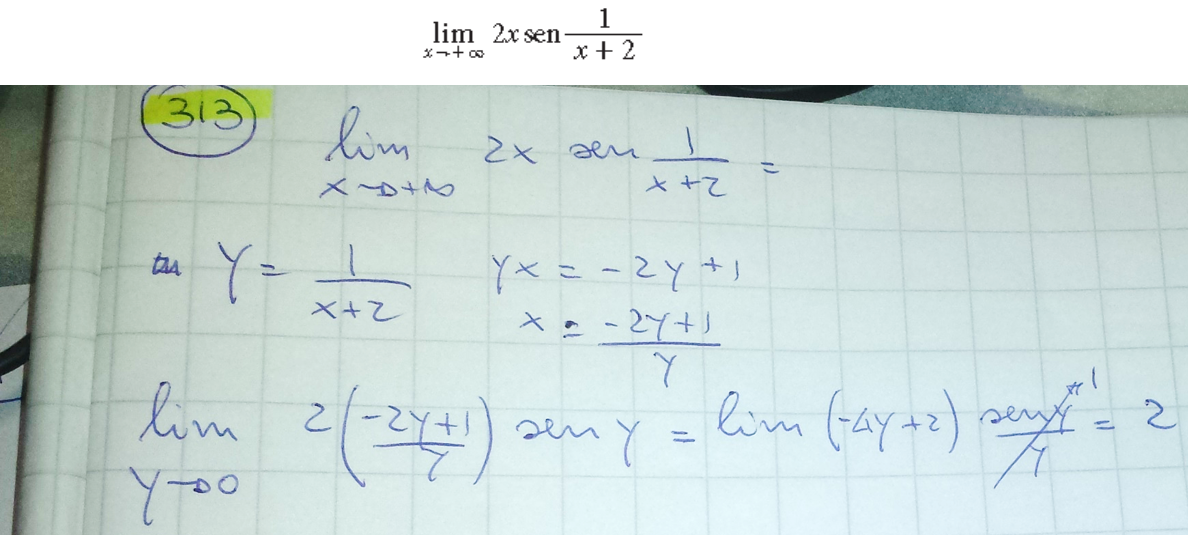 lim x→+∞ 2x sen 1/(x + 2)
313
lim x→+∞ 2x sen 1/(x+2) =
y = 1/(x+2) yx = -2y+1
x = (-2y+1)/y
lim y→0 2((-2y+1)/y) sen y = lim (-4y+2) sen y/y →1 = 2